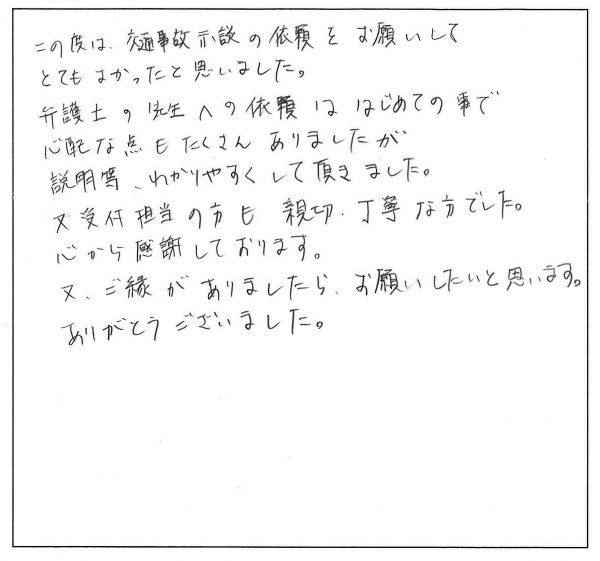 この度は、交通事故示談の依頼をお願いして
とてもよかったと思いました。
弁護士の先生への依頼ははじめての事で
心配な点もたくさんありましたが
説明等、わかりやすくして頂きました。
又受付担当の方も親切、丁寧な方でした。
心から感謝しております。
又、ご縁がありましたら、お願いしたいと思います。
ありがとうございました。